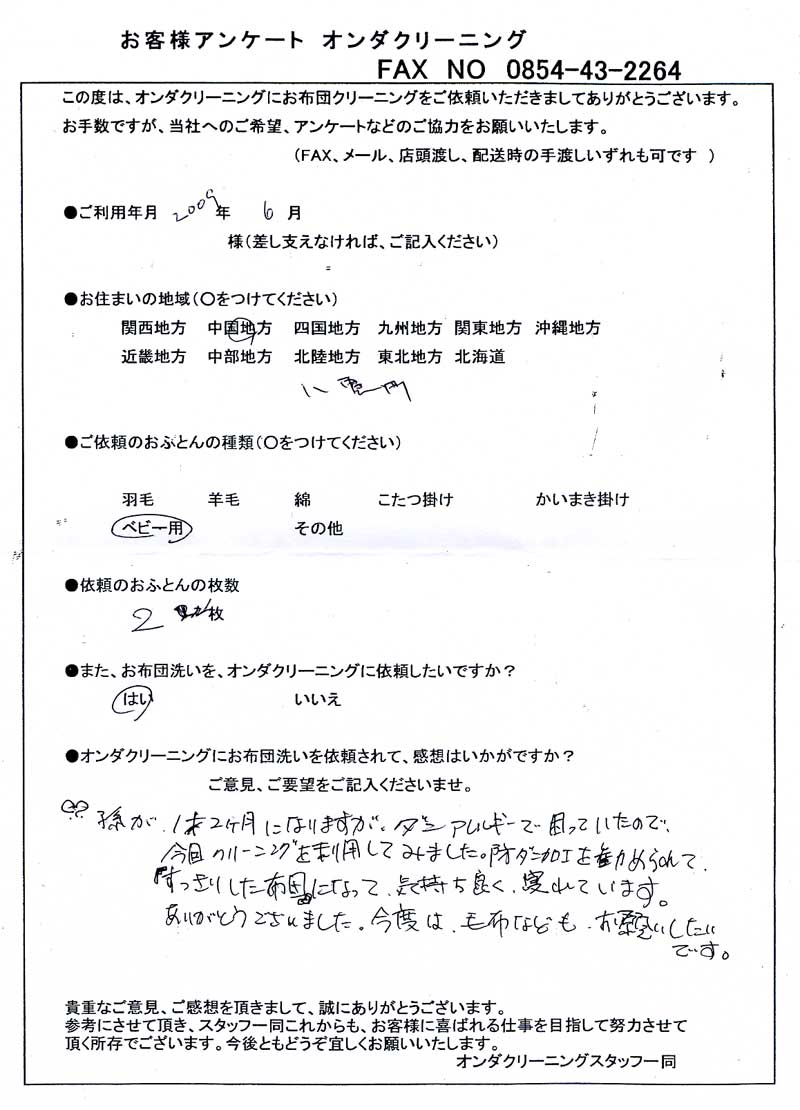 お客様アンケート オンダクリーニング
FAX NO 0854-43-2264
この度は、オンダクリーニングにお布団クリーニングをご依頼いただきましてありがとうございます。
お手数ですが、当社へのご希望、アンケートなどのご協力をお願いいたします。
(FAX、メール、店頭渡し、配送時の手渡しいずれも可です )
●ご利用年月 2009年 6月
様(差し支えなければ、ご記入ください)
●お住まいの地域(〇をつけてください)
関西地方 中国地方 四国地方 九州地方 関東地方 沖縄地方
近畿地方 中部地方 北陸地方 東北地方 北海道
●ご依頼のおふとんの種類(〇をつけてください)
羽毛 羊毛 綿 こたつ掛け かいまき掛け
ベビー用 その他
●依頼のおふとんの枚数
2 枚
●また、お布団洗いを、オンダクリーニングに依頼したいですか?
はい いいえ
●オンダクリーニングにお布団洗いを依頼されて、感想はいかがですか?
ご意見、ご要望をご記入くださいませ。
孫が、1才2ヶ月になりますが、ダニアレルギーで困っていたので、
今回クリーニングを利用してみました。防ダニ加工を勧められて、
すっきりした布団になって、気持ち良く、寝れています。
ありがとうございました。今度は、毛布なども、お願いしたい
です。
貴重なご意見、ご感想を頂きまして、誠にありがとうございます。
参考にさせて頂き、スタッフ一同これからも、お客様に喜ばれる仕事を目指して努力させて
頂く所存でございます。今後ともどうぞ宜しくお願いいたします。
オンダクリーニングスタッフ一同